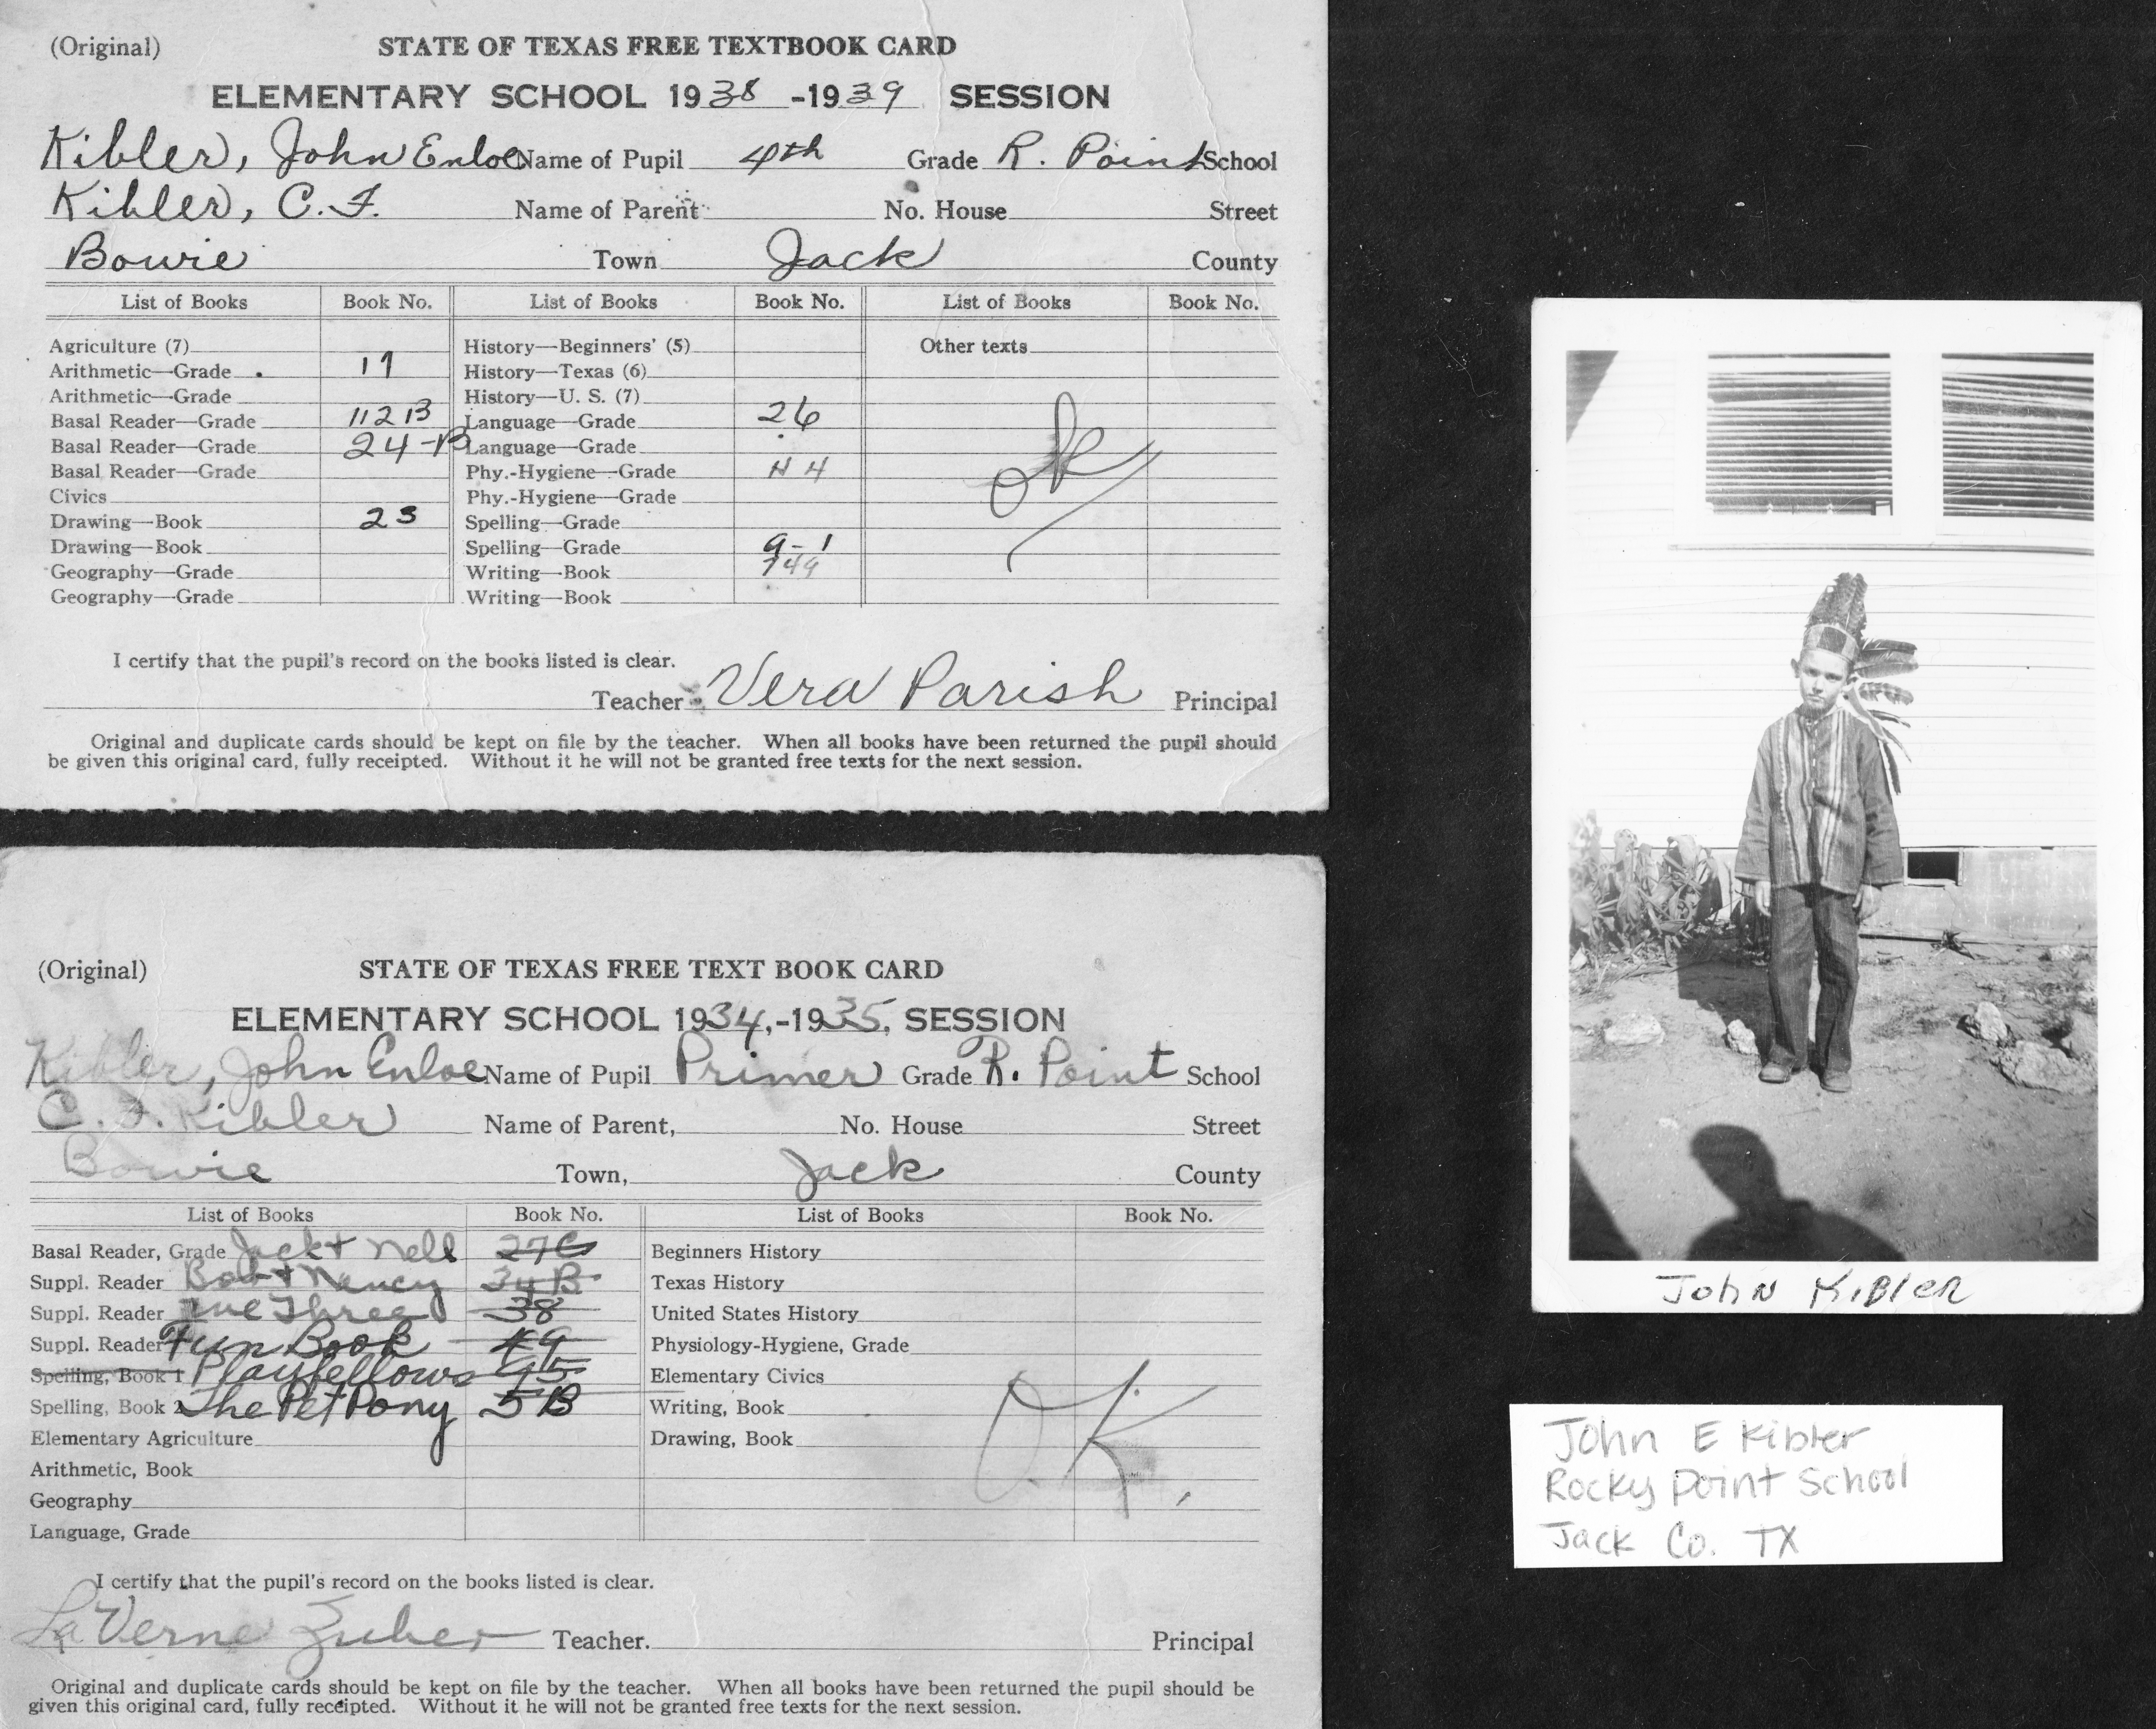 (Original) STATE OF TEXAS FREE TEXTBOOK CARD
ELEMENTARY SCHOOL 1938-1939 SESSION
Kibler, John Enloe Name of Pupil 4th Grade R. Point School
Kibler, C. F. Name of Parent No. House Street
Bowie Town Jack County
List of Books Book No. List of Books Book No. List of Books Book No.
Agriculture (7) History—Beginners' (5) Other texts
Arithmetic—Grade 19 History—Texas (6)
Arithmetic—Grade History—U. S. (7)
Basal Reader—Grade 112B Language—Grade 26
Basal Reader—Grade 24-B Language—Grade
Basal Reader—Grade Phy.-Hygiene—Grade H 4
Civics Phy.-Hygiene—Grade
Drawing—Book 23 Spelling—Grade
Drawing—Book Spelling—Grade 9-1
Geography—Grade Writing—Book 749
Geography—Grade Writing—Book
ok
I certify that the pupil's record on the books listed is clear.
Teacher Vera Parish Principal
Original and duplicate cards should be kept on file by the teacher. When all books have been returned the pupil should
be given this original card, fully receipted. Without it he will not be granted free texts for the next session.
(Original) STATE OF TEXAS FREE TEXT BOOK CARD
ELEMENTARY SCHOOL 1934,-1935, SESSION
Kibler, John Enloe Name of Pupil Primer Grade R. Point School
C. F. Kibler Name of Parent, No. House Street
Bowie Town, Jack County
List of Books Book No. List of Books Book No.
Basal Reader, Grade Jack & Nell 27C Beginners History
Suppl. Reader Bob & Nancy 34B Texas History
Suppl. Reader We Three 38 United States History
Suppl. Reader Fun Book 49 Physiology-Hygiene, Grade
Spelling, Book 1 Playfellows 95 Elementary Civics
Spelling, Book 2 The Pet Pony 5B Writing, Book
Elementary Agriculture Drawing, Book
Arithmetic, Book
Geography
Language, Grade
O.K.
I certify that the pupil's record on the books listed is clear.
LaVerne Zuber Teacher. Principal
Original and duplicate cards should be kept on file by the teacher. When all books have been returned the pupil should be
given this original card, fully receipted. Without it he will not be granted free texts for the next session.
John Kibler
John E Kibler
Rocky Point School
Jack Co. TX